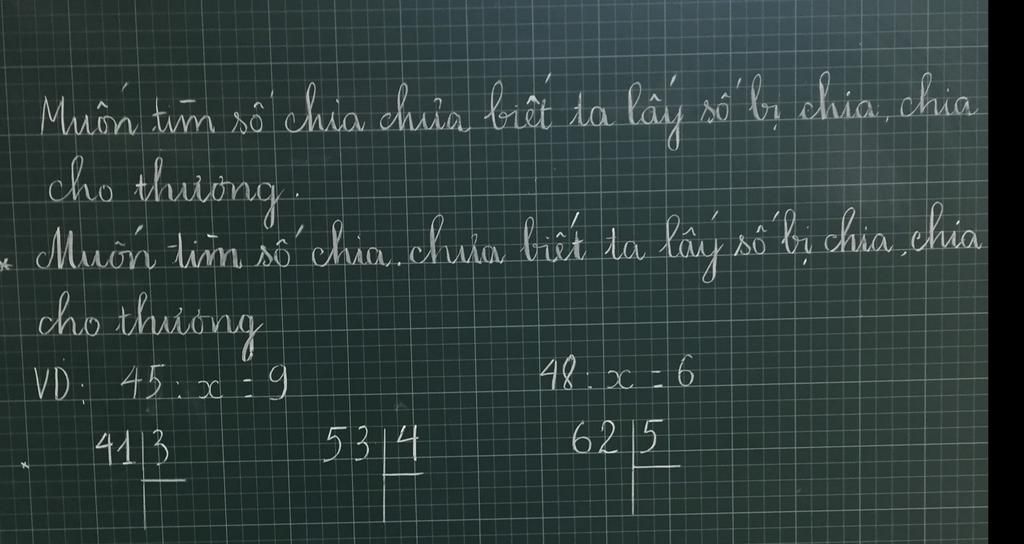 Muốn tìm số chia chưa biết ta lấy số bị chia, chia
cho thương.
* Muốn tìm số chia chưa biết ta lấy số bị chia, chia
cho thương
VD: 45 : x = 9 48 : x = 6
41 3 53 4 62 5